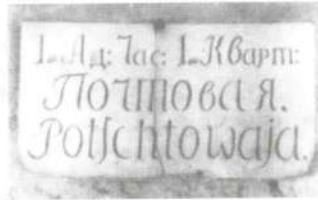 1.Ад: Час: 1.Кварт:
Почтовая.
Potſchtowaja.